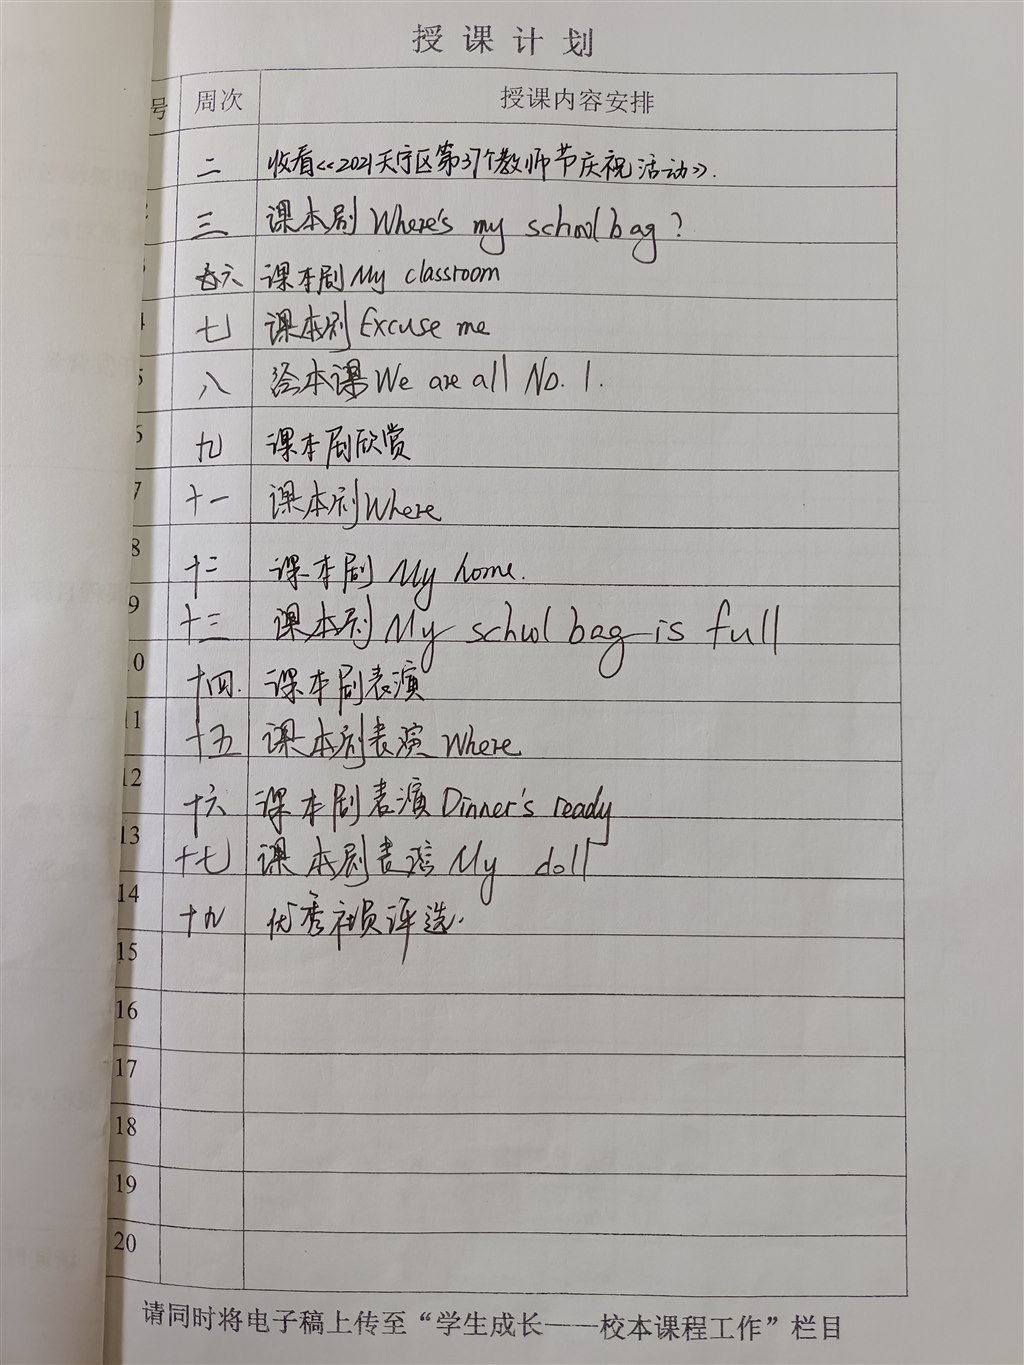 授课计划
号 周次 授课内容安排
二 收看《2021天宁区第37个教师节庆祝活动》.
2 三 课本剧 Where's my schoolbag?
3 六 课本剧 My classroom
4 七 课本剧 Excuse me
5 八 绘本课 We are all No. 1.
6 九 课本剧欣赏
7 十一 课本剧 Where
8 十二 课本剧 My home.
9 十三 课本剧 My school bag is full
10 十四. 课本剧表演
11 十五 课本剧表演 Where
12 十六 课本剧表演 Dinner's ready
13 十七 课本剧表演 My doll
14 十九 优秀社员评选.
15
16
17
18
19
20
请同时将电子稿上传至“学生成长——校本课程工作”栏目